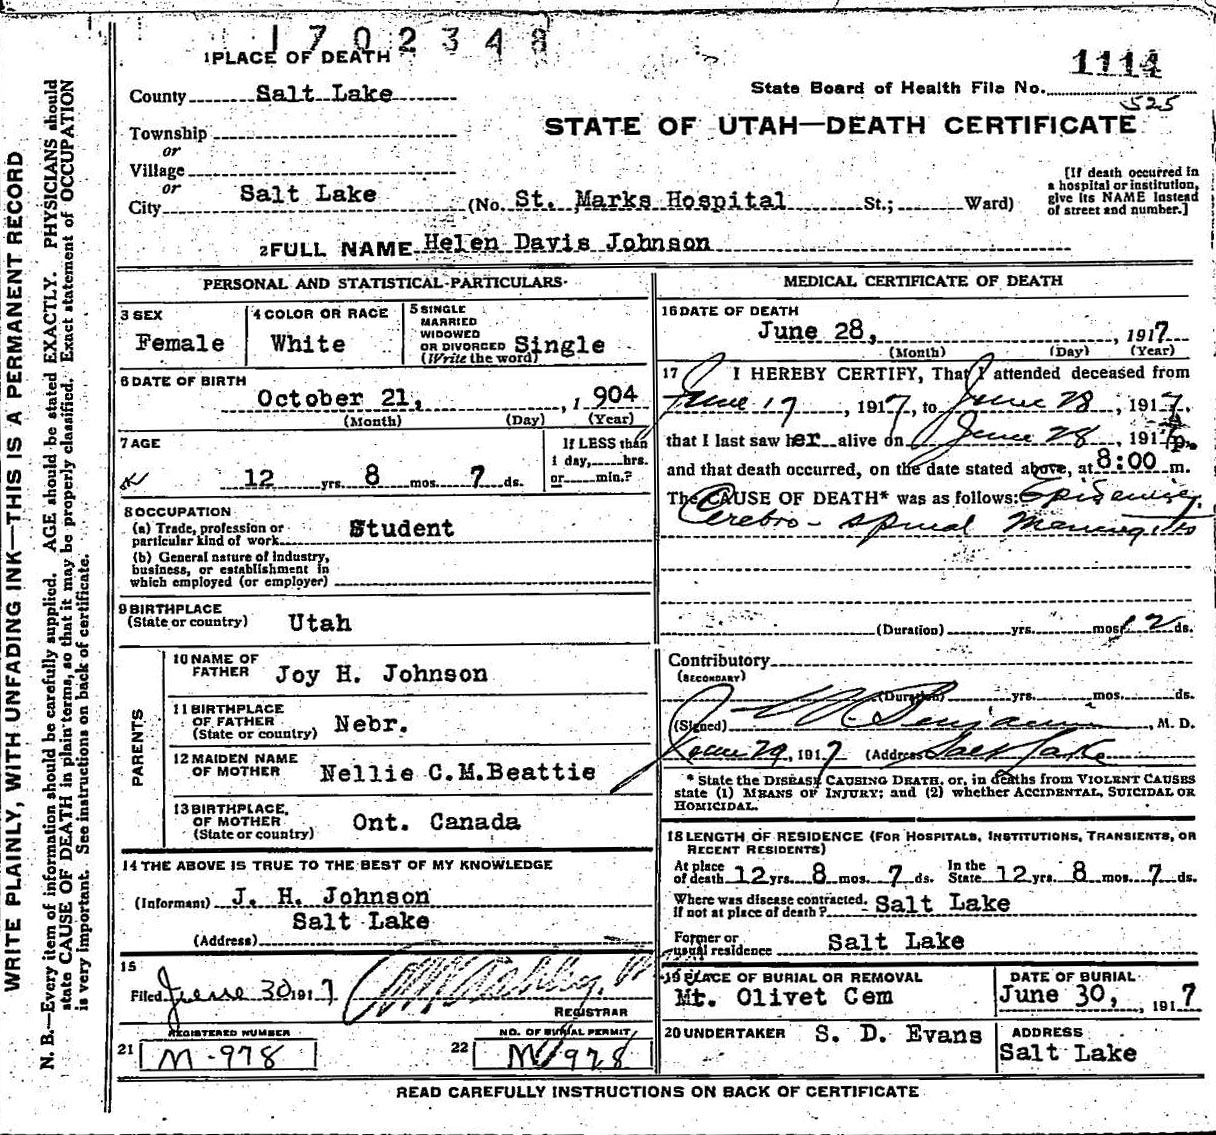 1702348
1 PLACE OF DEATH
1114
County Salt Lake
State Board of Health File No.
525
STATE OF UTAH—DEATH CERTIFICATE
Township
or
Village
or
City Salt Lake (No. St. Marks Hospital St.; Ward)
[If death occurred in
a hospital or institution,
give its NAME instead
of street and number.]
2 FULL NAME Helen Davis Johnson
PERSONAL AND STATISTICAL PARTICULARS
3 SEX
Female
4 COLOR OR RACE
White
5 SINGLE
MARRIED
WIDOWED
OR DIVORCED Single
(Write the word)
6 DATE OF BIRTH
October 21, , 1 904
(Month) (Day) (Year)
7 AGE
12 yrs. 8 mos. 7 ds.
If LESS than
1 day, hrs.
or min.?
8 OCCUPATION
(a) Trade, profession or
particular kind of work Student
(b) General nature of industry,
business, or establishment in
which employed (or employer)
9 BIRTHPLACE
(State or country) Utah
PARENTS
10 NAME OF
FATHER Joy H. Johnson
11 BIRTHPLACE
OF FATHER
(State or country) Nebr.
12 MAIDEN NAME
OF MOTHER Nellie C.M.Beattie
13 BIRTHPLACE,
OF MOTHER
(State or country) Ont. Canada
14 THE ABOVE IS TRUE TO THE BEST OF MY KNOWLEDGE
(Informant) J. H. Johnson
Salt Lake
(Address)
15
Filed June 30 1917
REGISTRAR
REGISTERED NUMBER
21 M-978
NO. OF BURIAL PERMIT
22 M 978
MEDICAL CERTIFICATE OF DEATH
16 DATE OF DEATH
June 28, , 1917
(Month) (Day) (Year)
17 I HEREBY CERTIFY, That I attended deceased from
June 17, 1917, to June 28, 1917,
that I last saw her alive on June 28, 1917,
and that death occurred, on the date stated above, at 8:00 p. m.
The CAUSE OF DEATH* was as follows: Epidemic
Cerebro-spinal Meningitis
(Duration) yrs. mos. 12 ds.
Contributory
(SECONDARY)
(Duration) yrs. mos. ds.
(Signed) Benjamin, M. D.
June 29, 1917 (Address) Salt Lake
* State the DISEASE CAUSING DEATH, or, in deaths from VIOLENT CAUSES
state (1) MEANS OF INJURY; and (2) whether ACCIDENTAL, SUICIDAL OR
HOMICIDAL.
18 LENGTH OF RESIDENCE (FOR HOSPITALS, INSTITUTIONS, TRANSIENTS, OR
RECENT RESIDENTS)
At place
of death 12 yrs. 8 mos. 7 ds.
In the
State 12 yrs. 8 mos. 7 ds.
Where was disease contracted,
if not at place of death? Salt Lake
Former or
usual residence Salt Lake
19 PLACE OF BURIAL OR REMOVAL
Mt. Olivet Cem
DATE OF BURIAL
June 30, , 1917
20 UNDERTAKER S. D. Evans
ADDRESS
Salt Lake
READ CAREFULLY INSTRUCTIONS ON BACK OF CERTIFICATE
WRITE PLAINLY, WITH UNFADING INK—THIS IS A PERMANENT RECORD
N. B.—Every item of information should be carefully supplied. AGE should be stated EXACTLY. PHYSICIANS should
state CAUSE OF DEATH in plain terms, so that it may be properly classified. Exact statement of OCCUPATION
is very important. See instructions on back of certificate.